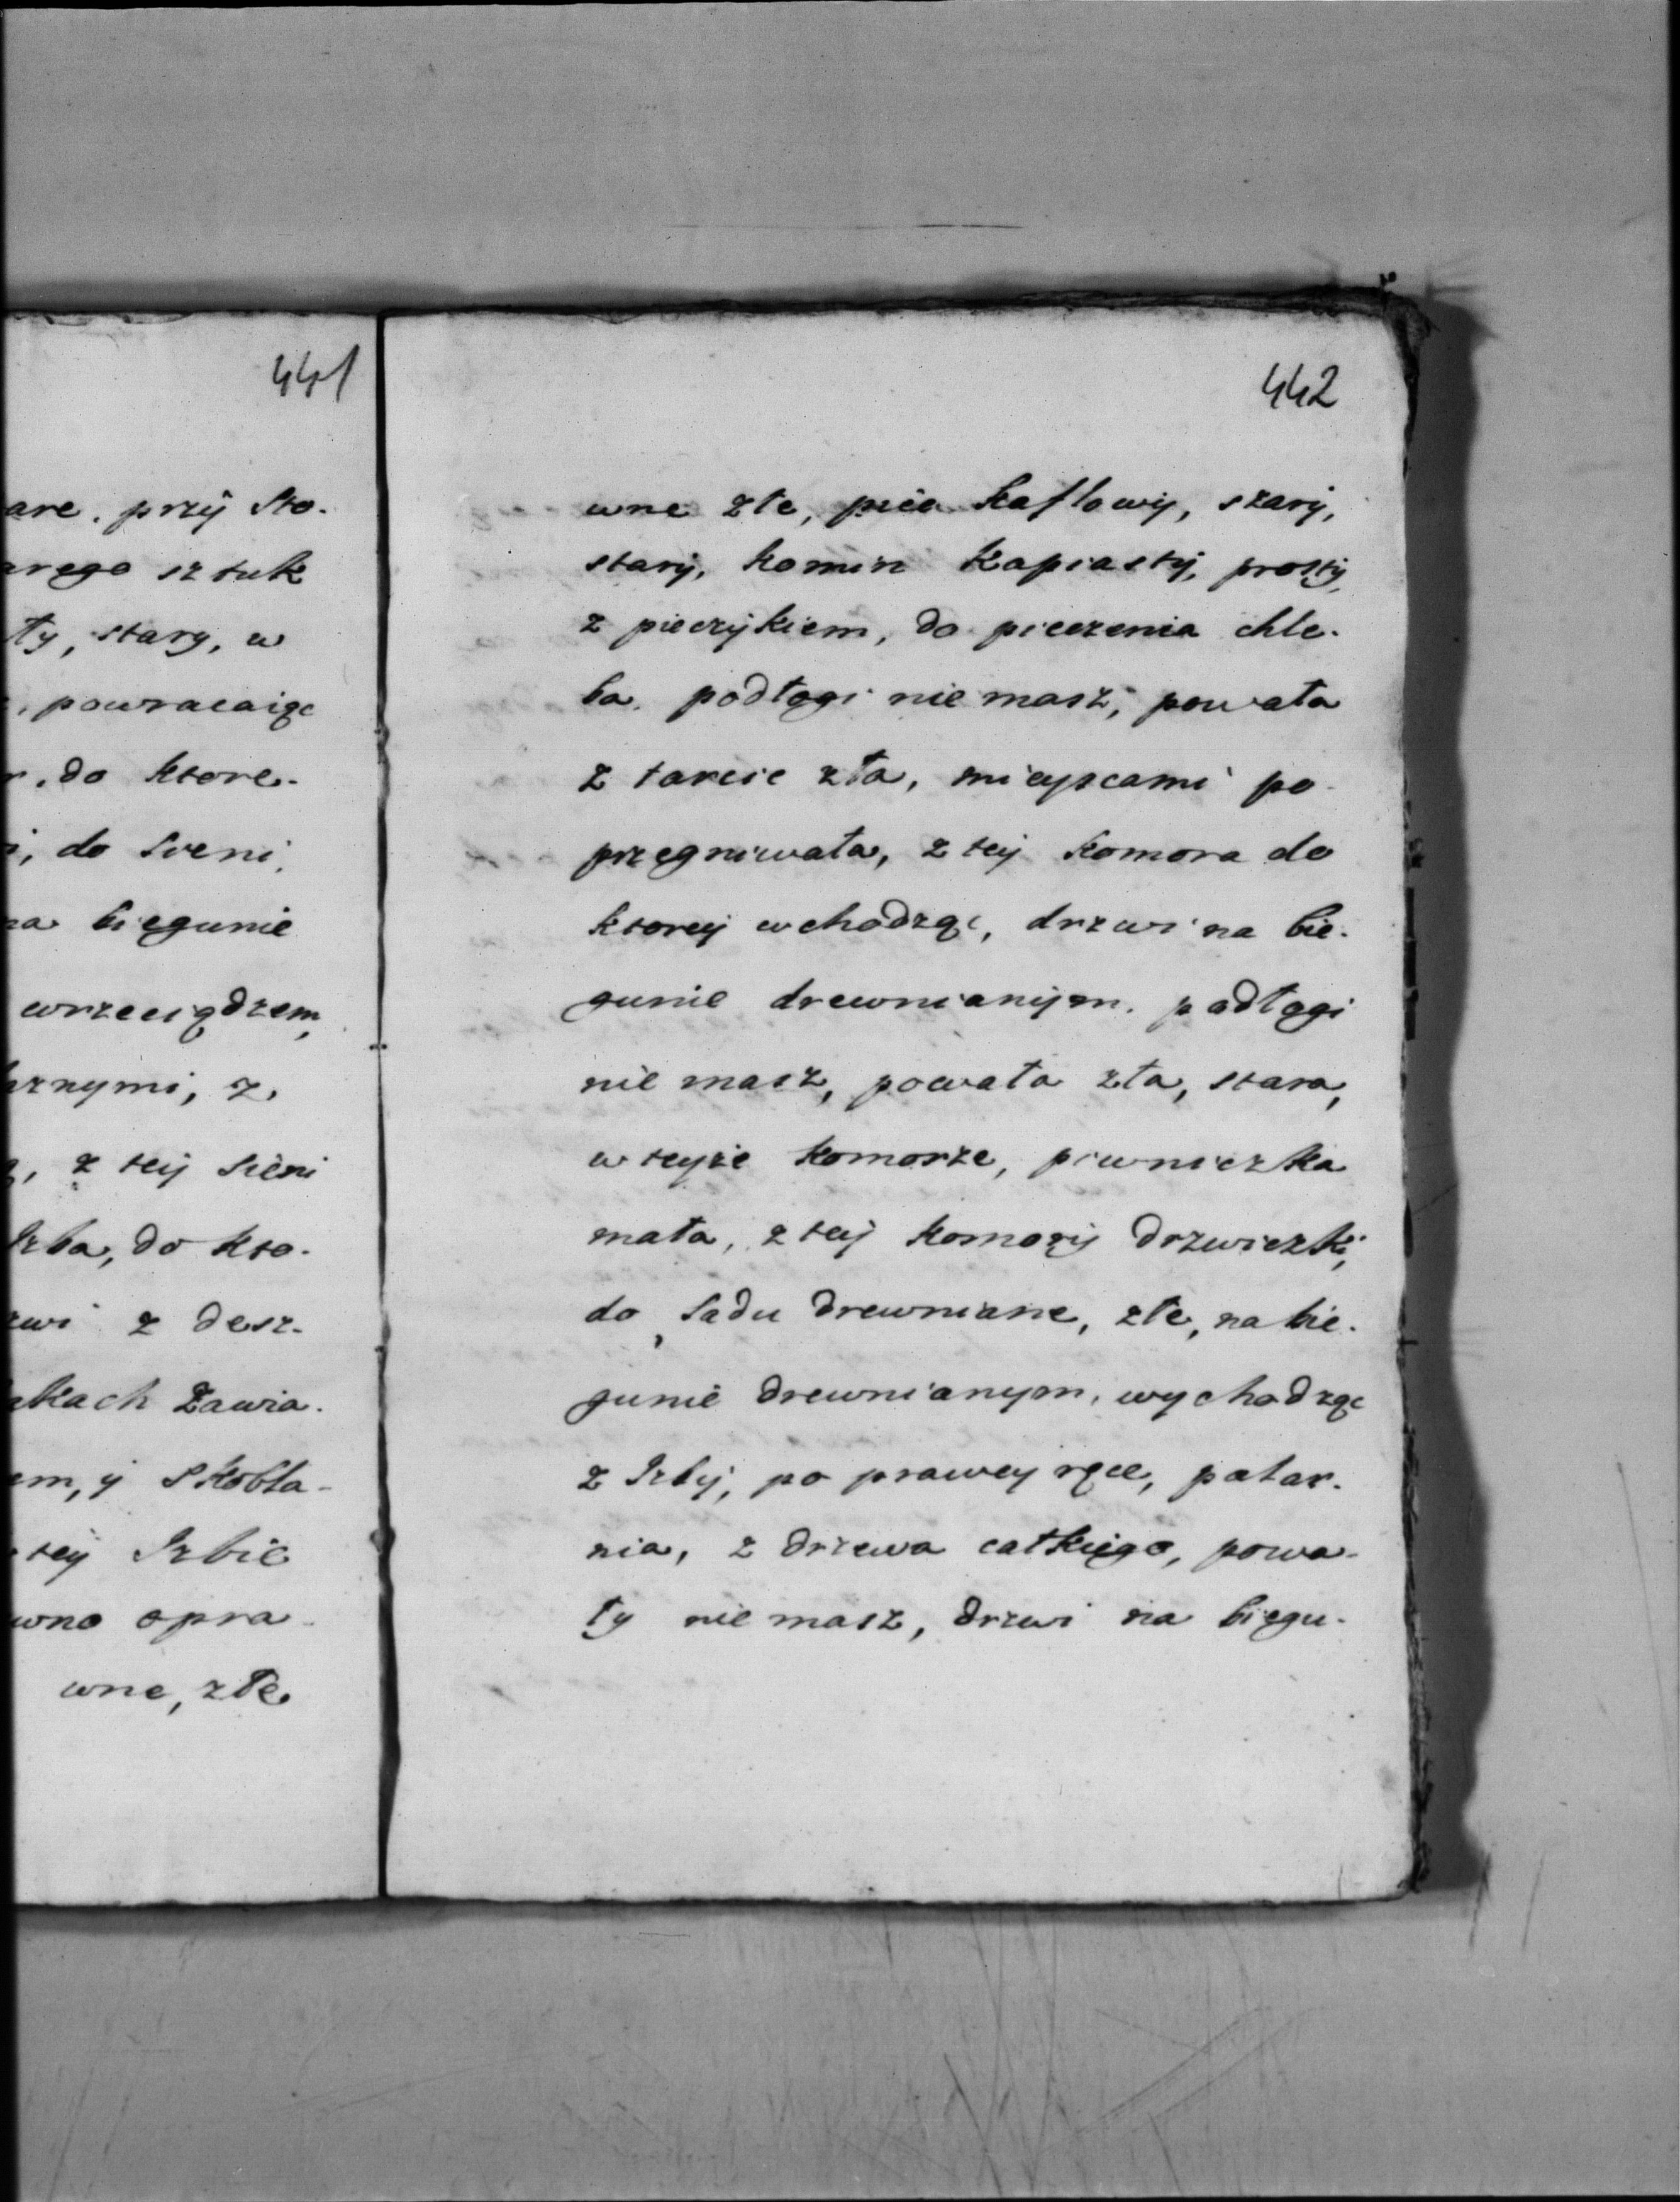 441
are. przÿ Sto-
arego sztuk
ty, stary, w
powracaiąc
r. do ktore-
i, do Sieni,
na biegunie
wrzeciądzem,
hrznymi, z
z teÿ Sieni
Izba, do kto-
zwi z desz-
akach Zawia-
em, y Skobla-
teÿ Izbie
wno opra-
wne, złe
442
wne złe, piec Kaflowÿ, szarÿ,
starÿ, komin Kapiastÿ, prostÿ,
z pieczÿkiem, do pieczenia chle-
ba. podłogi nie masz, powała
z tarcic zła, mieyscami po-
przegniwała, z teÿ Komora do
ktoreÿ wchodząc, drzwi na bie-
gunie drewnianÿm. podłogi
nie masz, powała zła, stara,
w teyże Komorze, piwniczka
mała, z teÿ Komorÿ drzwiczki,
do Sadu drewniane, złe, na bie-
gunie drewnianym, wychodząc
z Izbÿ, po prawey ręce, pekar-
nia, z drzewa całkiego, powa-
ły nie masz, drzwi na biegu-